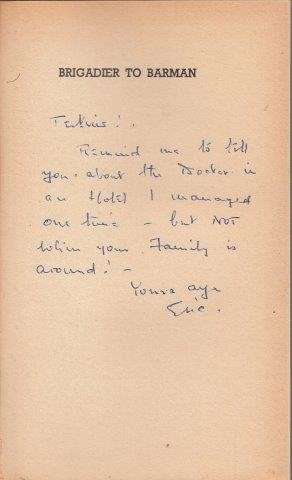 BRIGADIER TO BARMAN
Remind me to tell
you about the Doctor in
an Hotel I managed
one time – but NOT
when your Family is
around! –
Yours aye
Eric.